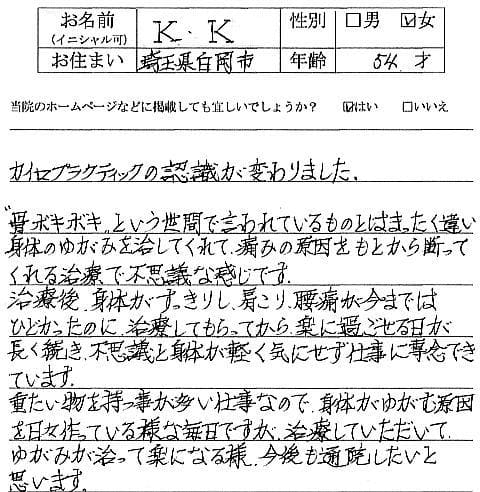 お名前 (イニシャル可) K.K 性別 □男 ☑女
お住まい 埼玉県白岡市 年齢 54才
当院のホームページなどに掲載しても宜しいでしょうか? ☑はい □いいえ
カイロプラクティックの認識が変わりました。
"骨ボキボキ"という世間で言われているものとはまったく違い
身体のゆがみを治してくれて、痛みの原因をもとから断って
くれる治療で不思議な感じです。
治療後、身体がすっきりし、肩こり、腰痛が今までは
ひどかったのに、治療してもらってから、楽に過ごせる日が
長く続き、不思議と身体が軽く気にせず仕事に専念でき
ています。
重たい物を持つ事が多い仕事なので、身体がゆがむ原因
を日々作っている様な毎日ですが、治療していただいて、
ゆがみが治って楽になる様、今後も通院したいと
思います。